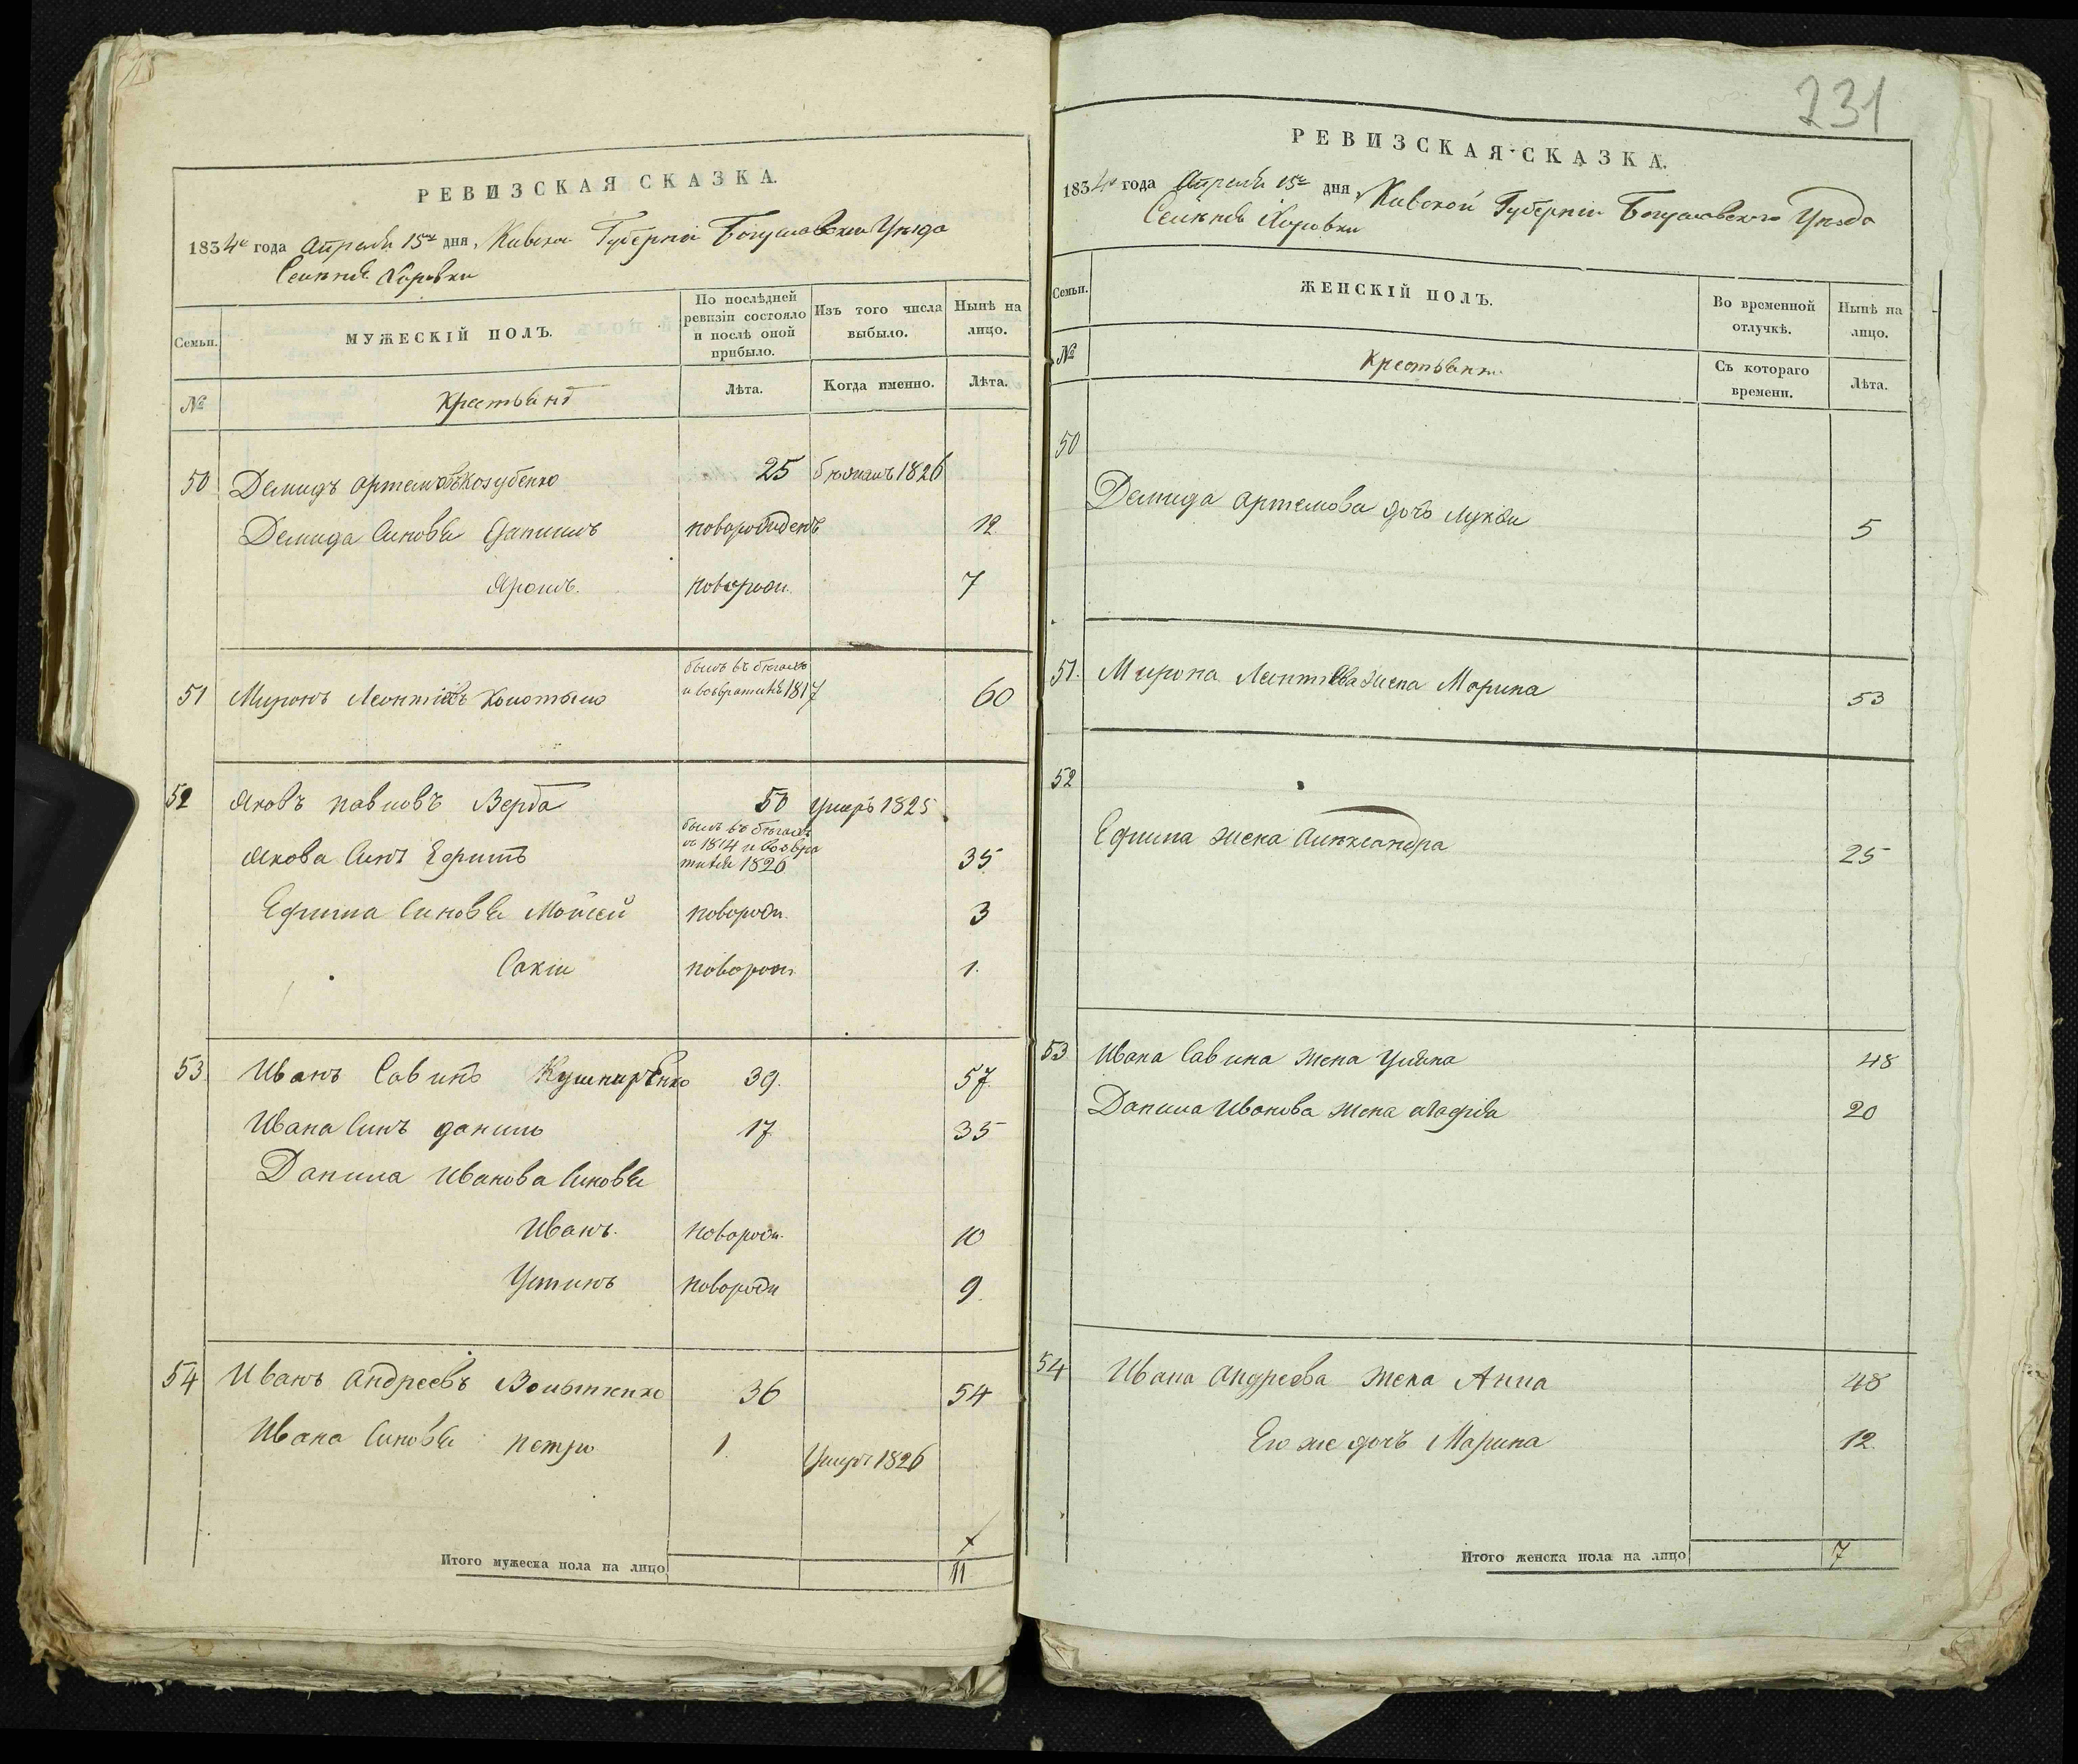 РЕВИЗСКАЯ СКАЗКА.
1834го года Апреля 15го дня, Киевской Губерніи Богуславского Уѣзда
Селенія Хоровки
Семьи. МУЖЕСКІЙ ПОЛЪ. По послѣдней ревизіи состояло и послѣ оной прибыло. Изъ того числа выбыло. Нынѣ на лицо.
№ Крестьянъ Лѣта. Когда именно. Лѣта.
50 Демидъ Артемовъ Козубенко 25 бѣжалъ 1826
Демида Синовья Данишъ новорожденъ 12
новорожд. 7
51 Миронъ Леонтіевъ былъ въ бѣгахъ и возвратился 1817 60
52 Яковъ Павловъ Верба 50 умеръ 1825
Якова Синъ Ефимъ былъ въ бѣгахъ съ 1814 и возвратился 1826 35
Ефима Синовья Мойсей новорожд. 3
новорожд. 1.
53 Иванъ Савинъ Кушниренко 39. 57.
Ивана Синъ Данило 17. 35
Данила Иванова Синовья
Иванъ. новорожд. 10
Устинъ новорожд 9.
54 Иванъ Андреевъ 36 54
Ивана Синовья Петро 1. Умеръ 1826
Итого мужеска пола на лицо 11
231
РЕВИЗСКАЯ СКАЗКА.
1834го года Апреля 15го дня, Киевской Губерніи Богуславского Уѣзда
Селенія Хоровки
Семьи. ЖЕНСКІЙ ПОЛЪ. Во временной отлучкѣ. Нынѣ на лицо.
№ Крестьянки Съ котораго времени. Лѣта.
50
Демида Артемова дочь 5
51. Мирона Леонтіева жена Марина 53
52
Ефима жена Александра 25
53 Ивана Савина жена Уліяна 48
Данила Иванова жена Агафія 20
54 Ивана Андреева жена Анна 48
Его же дочь Марина 12.
Итого женска пола на лицо 7